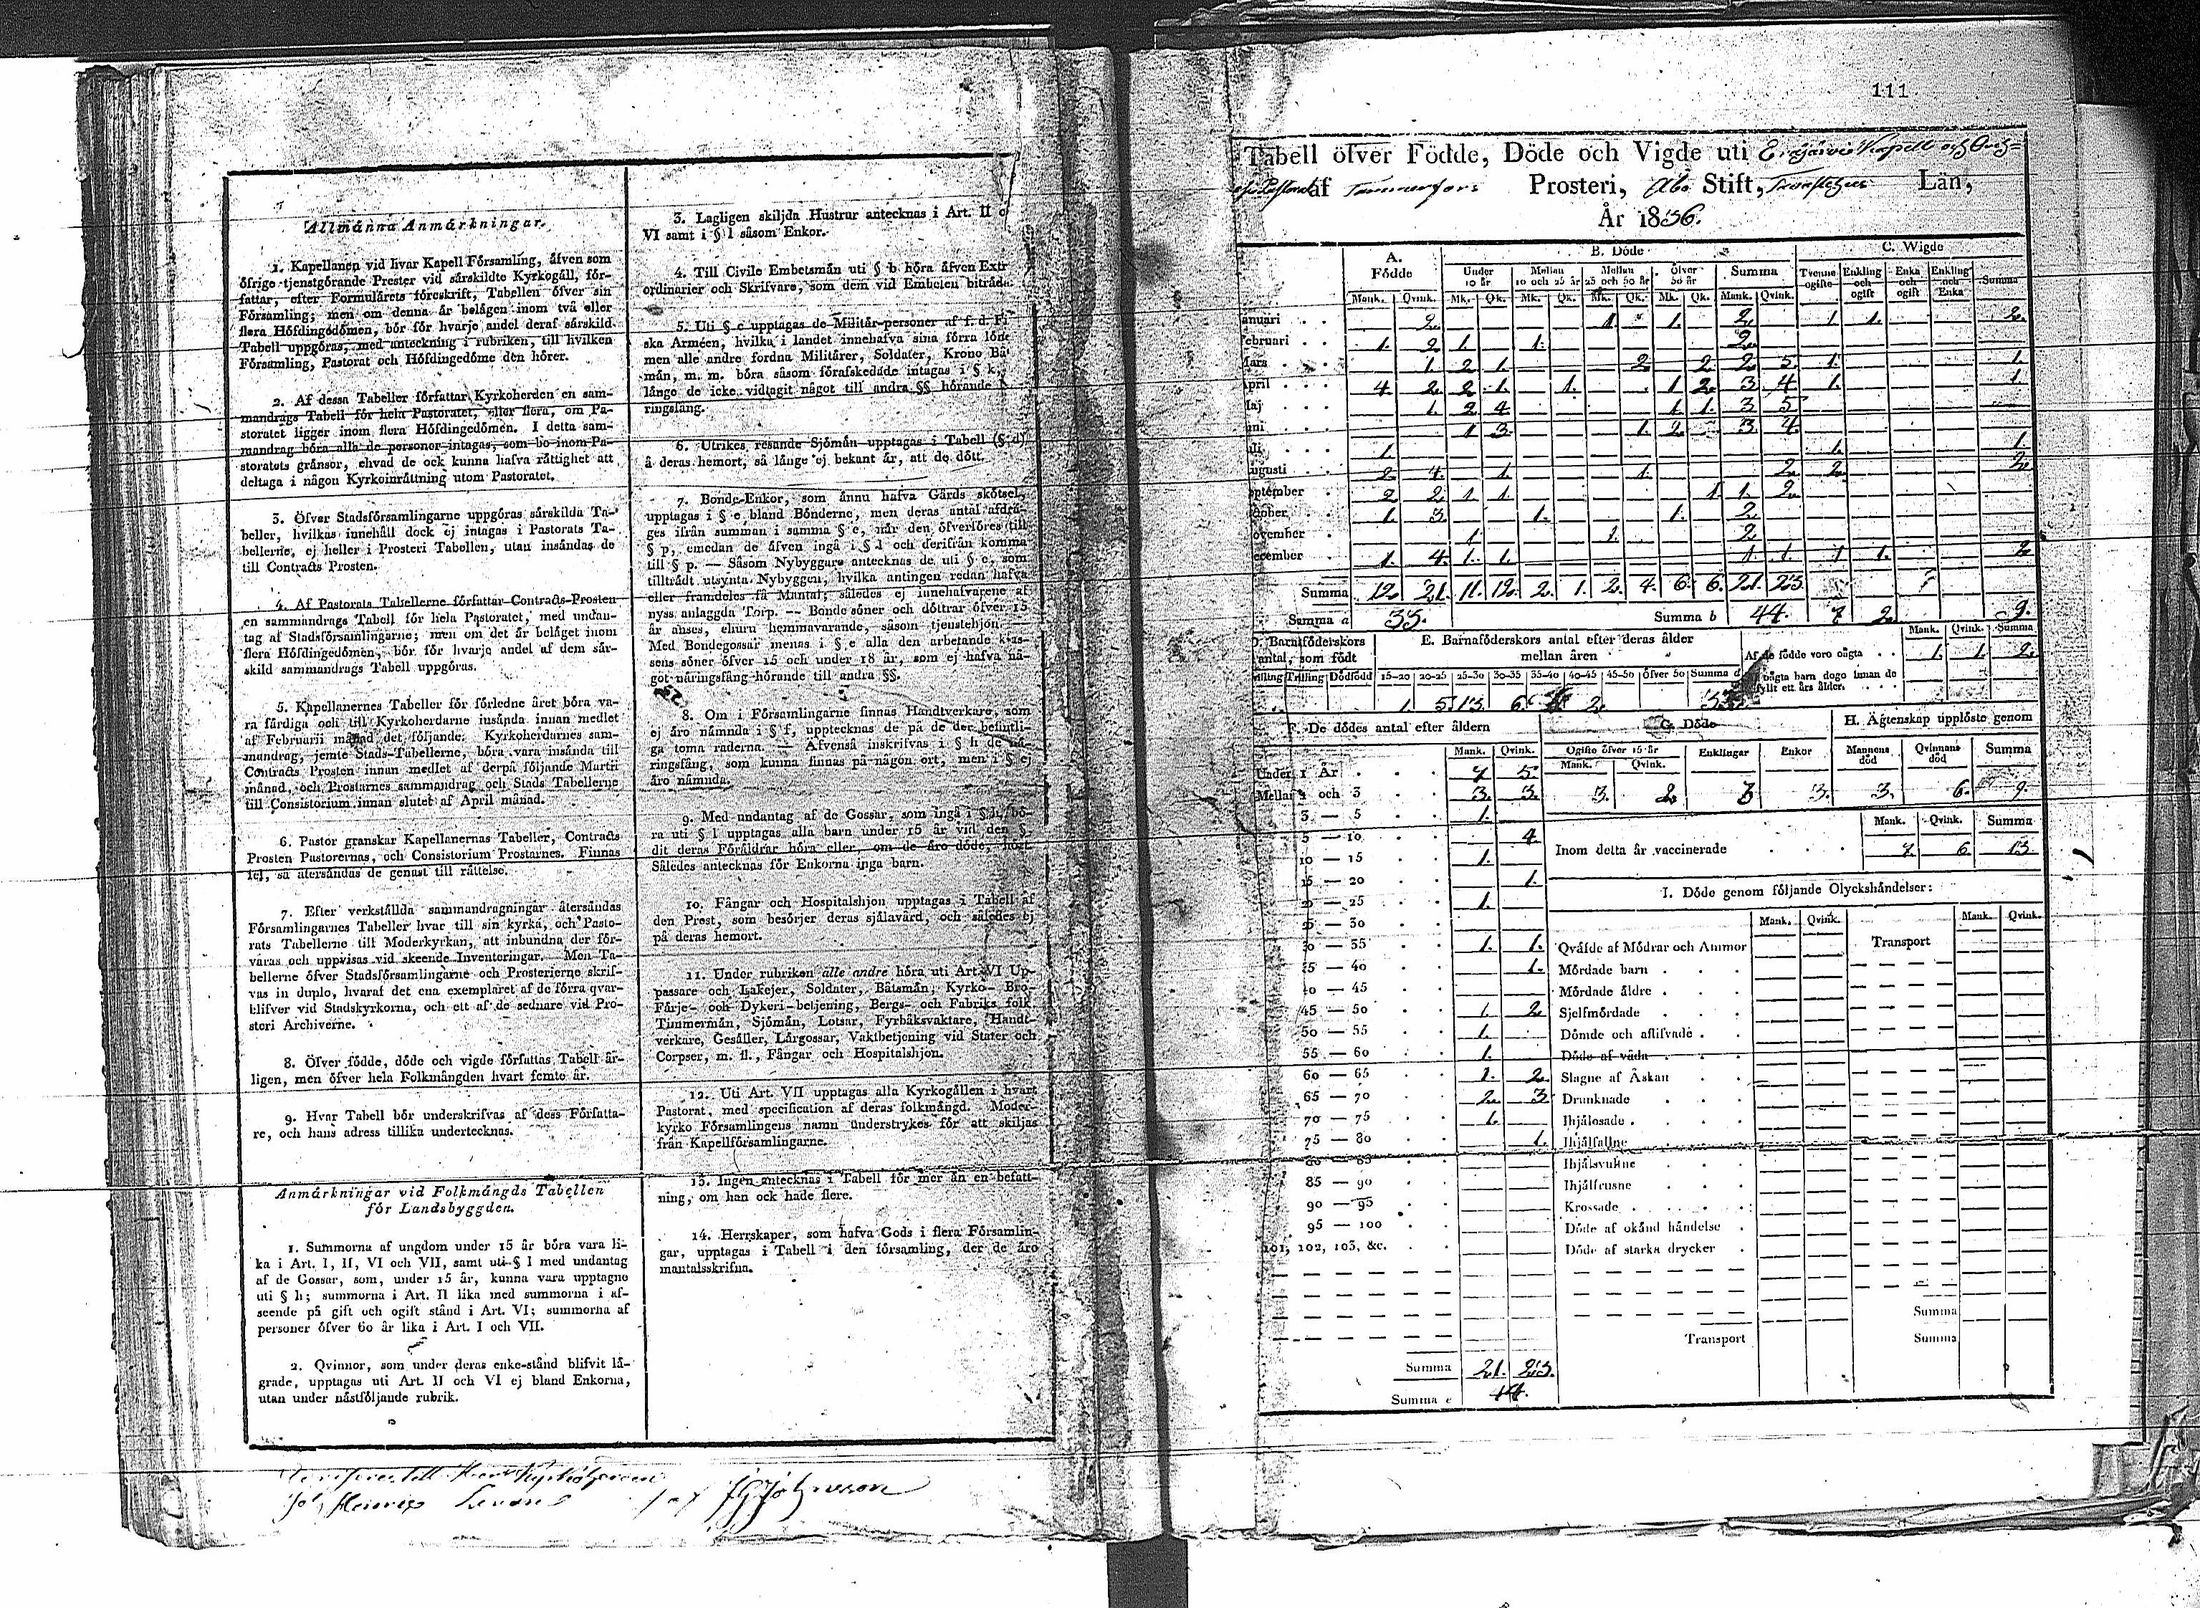 Allmänna Anmärkningar.
1. Kapellanen vid hvar Kapell Församling, äfven som
öfrige tjenstgörande Prester vid särskildte Kyrkogäll, för-
fattar, efter Formulärets föreskrift, Tabellen öfver sin
Församling; men om denna är belägen inom två eller
flera Höfdingedömen, bör för hvarje andel deraf särskild
Tabell uppgöras, med anteckning i rubriken, till hvilken
Församling, Pastorat och Höfdingedöme den hörer.
2. Af dessa Tabeller författar Kyrkoherden en sam-
mandrags Tabell för hela Pastoratet, eller flera, om Pa-
storatet ligger inom flera Höfdingedömen. I detta sam-
mandrag böra alla de personer intagas, som bo inom Pa-
storatets gränsor, ehvad de ock kunna hafva rättighet att
deltaga i någon Kyrkoinrättning utom Pastoratet.
3. Öfver Stadsförsamlingarne uppgöras särskilda Ta-
beller, hvilkas innehåll dock ej intagas i Pastorats Ta-
bellerne, ej heller i Prosteri Tabellen, utan insändas de
till Contracts Prosten.
4. Af Pastorats Tabellerne författar Contracts-Prosten
en sammandrags Tabell för hela Pastoratet, med undan-
tag af Stadsförsamlingarne; men om det är beläget inom
flera Höfdingedömen, bör för hvarje andel af dem sär-
skild sammandrags Tabell uppgöras.
5. Kapellanernes Tabeller för förledne året böra va-
ra färdiga och till Kyrkoherdarne insända innan medlet
af Februarii månad det följande. Kyrkoherdarnes sam-
mandrag, jemte Stads-Tabellerne, böra vara insända till
Contracts Prosten innan medlet af derpå följande Martii
månad, och Prostarnes sammandrag och Stads Tabellerne
till Consistorium innan slutet af April månad.
6. Pastor granskar Kapellanernas Tabeller, Contracts
Prosten Pastorernas, och Consistorium Prostarnes. Finnas
fel, så återsändas de genast till rättelse.
7. Efter verkställda sammandragningar återsändas
Församlingarnes Tabeller hvar till sin kyrka, och Pasto-
rats Tabellerne till Moderkyrkan, att inbundna der för-
varas och uppvisas vid skeende Inventeringar. Men Ta-
bellerne öfver Stadsförsamlingarne och Prosterierne skrif-
vas in duplo, hvaraf det ena exemplaret af de förra qvar-
blifver vid Stadskyrkorna, och ett af de sednare vid Pro-
steri Archiverne.
8. Öfver födde, döde och vigde författas Tabell år-
ligen, men öfver hela Folkmängden hvart femte år.
9. Hvar Tabell bör underskrifvas af dess Författa-
re, och hans adress tillika undertecknas.
Anmärkningar vid Folkmängds Tabellen
för Landsbyggden.
1. Summorna af ungdom under 15 år böra vara li-
ka i Art. I, II, VI och VII, samt uti § l med undantag
af de Gossar, som, under 15 år, kunna vara upptagne
uti § h; summorna i Art. II lika med summorna i af-
seende på gift och ogift stånd i Art. VI; summorna af
personer öfver 60 år lika i Art. I och VII.
2. Qvinnor, som under deras enke-stånd blifvit lä-
grade, upptagas uti Art. II och VI ej bland Enkorna,
utan under nästföljande rubrik.
3. Lagligen skiljda Hustrur antecknas i Art. II o
VI samt i § l såsom Enkor.
4. Till Civile Embetsmän uti § b höra äfven Extr
ordinarier och Skrifvare, som dem vid Embeten biträda.
5. Uti § c upptagas de Militär-personer af f. d. Fi
ska Arméen, hvilka i landet innehafva sina förra löne
men alle andre fordna Militärer, Soldater, Krono Bå
män, m. m. böra såsom förafskedade intagas i § k,
länge de icke vidtagit något till andra §§ hörande n
ringsfång.
6. Utrikes resande Sjömän upptagas i Tabell (§ d)
å deras hemort, så länge ej bekant är, att de dött.
7. Bonde-Enkor, som ännu hafva Gårds skötsel,
upptagas i § e bland Bönderne, men deras antal afdra-
ges ifrån summan i samma § e, när den öfverföres till
§ p, emedan de äfven ingå i § l och derifrån komma
till § p. — Såsom Nybyggare antecknas de uti § e, som
tillträdt utsynta Nybyggen, hvilka antingen redan hafva
eller framdeles få Mantal; således ej innehafvarene af
nyss anlaggda Torp. — Bonde söner och döttrar öfver 15
år anses, ehuru hemmavarande, såsom tjenstehjon. —
Med Bondegossar menas i § e alla den arbetande klas-
sens söner öfver 15 och under 18 år, som ej hafva nå-
got näringsfång hörande till andra §§.
8. Om i Församlingarne finnas Handtverkare, som
ej äro nämnda i § f, upptecknas de på de der befintli-
ga toma raderna. — Äfvenså inskrifvas i § h de nä-
ringsfång, som kunna finnas på någon ort, men i § ej
äro nämnda.
9. Med undantag af de Gossar, som ingå i § h, bö-
ra uti § l upptagas alla barn under 15 år vid den §
dit deras Föräldrar höra eller, om de äro döde, hört
Således antecknas för Enkorna inga barn.
10. Fångar och Hospitalshjon upptagas i Tabell af
den Prest, som besörjer deras själavård, och således ej
på deras hemort.
11. Under rubriken alle andre höra uti Art. VI Up-
passare och Lakejer, Soldater, Båtsmän, Kyrko- Bro-
Färje- och Dykeri-betjening, Bergs- och Fabriks folk
Timmermän, Sjömän, Lotsar, Fyrbåksvaktare, Handt-
verkare, Gesäller, Lärgossar, Vaktbetjening vid Stater och
Corpser, m. fl., Fångar och Hospitalshjon.
12. Uti Art. VII upptagas alla Kyrkogällen i hvart
Pastorat, med specification af deras folkmängd. Moder-
kyrko Församlingens namn understrykes för att skiljas
från Kapellförsamlingarne.
13. Ingen antecknas i Tabell för mer än en befatt-
ning, om han ock hade flere.
14. Herrskaper, som hafva Gods i flera Församlin-
gar, upptagas i Tabell i den församling, der de äro
mantalsskrifna.
111
Tabell öfver Födde, Döde och Vigde uti Kapell och
af Tammerfors Prosteri, Åbo Stift, Tavastehus Län,
År 1836.
A. Födde B. Döde C. Wigde
Under 10 år Mellan 10 och 25 år Mellan 25 och 50 år Öfver 50 år Summa Tvenne ogifte Enkling och ogift Enka och ogift Enkling och Enka Summa
Mank. Qvink. Mk. Qk. Mk. Qk. Mk. Qk. Mk. Qk. Mank. Qvink.
anuari 2. 1. 1. 2. 1. 1. 2.
ebruari 1. 2. 1. 1. 2.
Mars 1. 2. 1. 2. 2. 2. 5. 1. 1.
April 4. 2. 2. 1. 1. 1. 2. 3. 4. 1. 1.
Maj 1. 2. 4. 1. 1. 3. 5.
uni 1. 3. 1. 2. 3. 4.
uli 1. 1. 1.
ugusti 2. 4. 1. 1. 2. 2. 2.
eptember 2. 2. 1. 1. 1. 1. 2.
ctober 1. 3. 1. 1. 2.
ovember 1. 1. 2.
ecember 1. 4. 1. 1. 1. 1. 1. 1. 2.
Summa 12. 21. 11. 12. 2. 1. 2. 4. 6. 6. 21. 23.
Summa a 33. Summa b 44. 7 2. 9.
D. Barnaföderskors antal, som födt
Tvilling Trilling Dödfödd
E. Barnaföderskors antal efter deras ålder mellan åren
15-20 20-25 25-30 30-35 35-40 40-45 45-50 Öfver 50 Summa d
1. 5. 13. 6. 2. 33
Mank. Qvink. Summa
Af de födde voro oägta 1. 1. 2.
oägta barn dogo innan de
fyllt ett års ålder.
F. De dödes antal efter åldern
Mank. Qvink.
Under 1 År 7 5.
Mellan 1 och 3 3. 3.
3 — 5 1.
5 — 10 4.
10 — 15 1.
15 — 20 1.
20 — 25 1.
25 — 30
30 — 35 1. 1.
35 — 40 1.
40 — 45
45 — 50 1. 2.
50 — 55 1.
55 — 60 1.
60 — 65 1. 2.
65 — 70 2. 3
70 — 75 1.
75 — 80 1.
80 — 85
85 — 90
90 — 95
95 — 100
101, 102, 103, &c.
Summa 21. 23.
Summa e 44.
G. Döde
Ogifte öfver 15 år Enklingar Enkor
Mank. Qvink.
3. 2. 3 3.
H. Ägtenskap upplöste genom
Mannens död Qvinnans död Summa
3. 6. 9.
Mank. Qvink. Summa
Inom detta år vaccinerade 7. 6. 13.
I. Döde genom följande Olyckshändelser:
Mank. Qvink. Mank. Qvink.
Qväfde af Mödrar och Ammor Transport
Mördade barn
Mördade äldre
Sjelfmördade
Dömde och aflifvade
Döde af våda
Slagne af Åskan
Drunknade
Ihjälosade
Ihjälfallne
Ihjälsvultne
Ihjälfrusne
Krossade
Döde af okänd händelse
Döde af starka drycker
Summa
Transport Summa